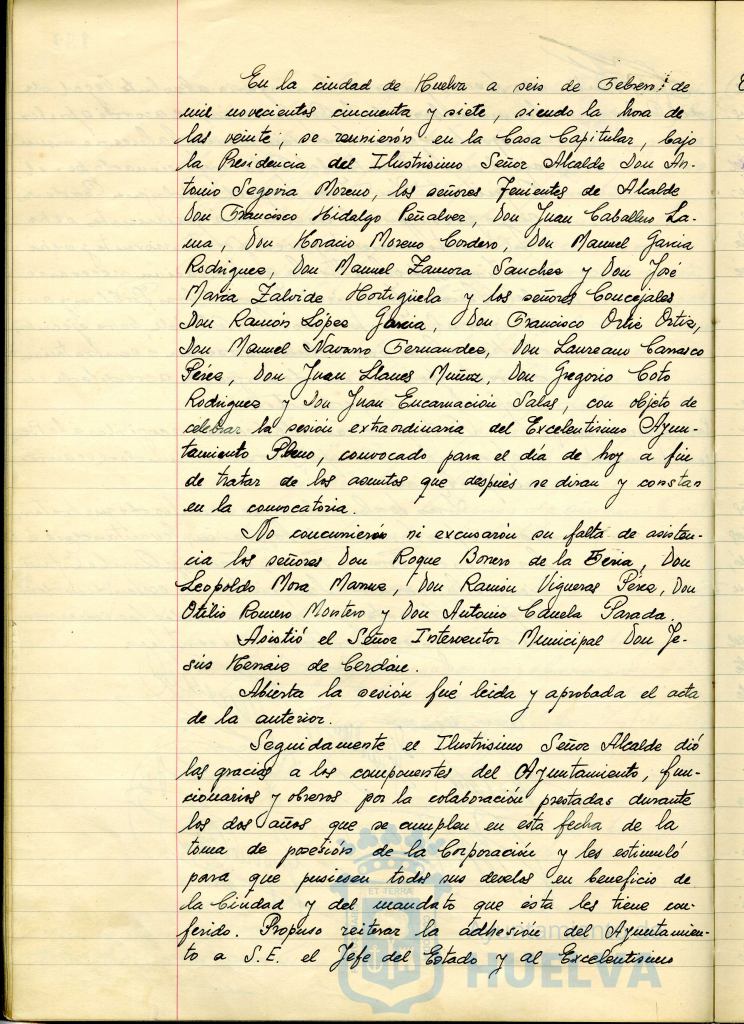 En la ciudad de Huelva a seis de Febrero de
mil novecientos cincuenta y siete, siendo la hora de
las veinte, se reunierón en la Casa Capitular, bajo
la Presidencia del Ilustrisimo Señor Alcalde Don An-
tonio Segovia Moreno, los señores Tenientes de Alcalde
Don Francisco Hidalgo Peñalver, Don Juan Caballero La-
ma, Don Horacio Moreno Cordero, Don Manuel Garcia
Rodriguez, Don Manuel Zamora Sanchez y Don José
Maria Zalvide Hortigüela y los señores Concejales
Don Ramón López Garcia, Don Francisco Ortiz Ortiz,
Don Manuel Navarro Fernandez, Don Laureano Carrasco
Pérez, Don Juan Llanes Muñoz, Don Gregorio Coto
Rodriguez y Don Juan Encarnación Salas, con objeto de
celebrar la sesión extraordinaria del Excelentisimo Ayun-
tamiento Pleno, convocado para el día de hoy a fin
de tratar de los asuntos que después se diran y constan
en la convocatoria.
No concurrierón ni excusarón su falta de asisten-
cia los señores Don Roque Borrero de la Feria, Don
Leopoldo Mora Don Ramón Vigueras Pérez, Don
Otilio Romero Montero y Don Antonio Canela Parada.
Asistió el Señor Interventor Municipal Don Je-
sús de Cerdán.
Abierta la sesión fué leida y aprobada el acta
de la anterior.
Seguidamente el Ilustrisimo Señor Alcalde dió
las gracias a los componentes del Ayuntamiento, fun-
cionarios y obreros por la colaboración prestadas durante
los dos años que se cumplen en esta fecha de la
toma de posesión de la Corporación y les estimuló
para que pusiesen todos sus desvelos en beneficio de
la Ciudad y del mandato que ésta les tiene con-
ferido. Propuso reiterar la adhesión del Ayuntamien-
to a S.E. el Jefe del Estado y al Excelentisimo
ET TERRA
HUELVA